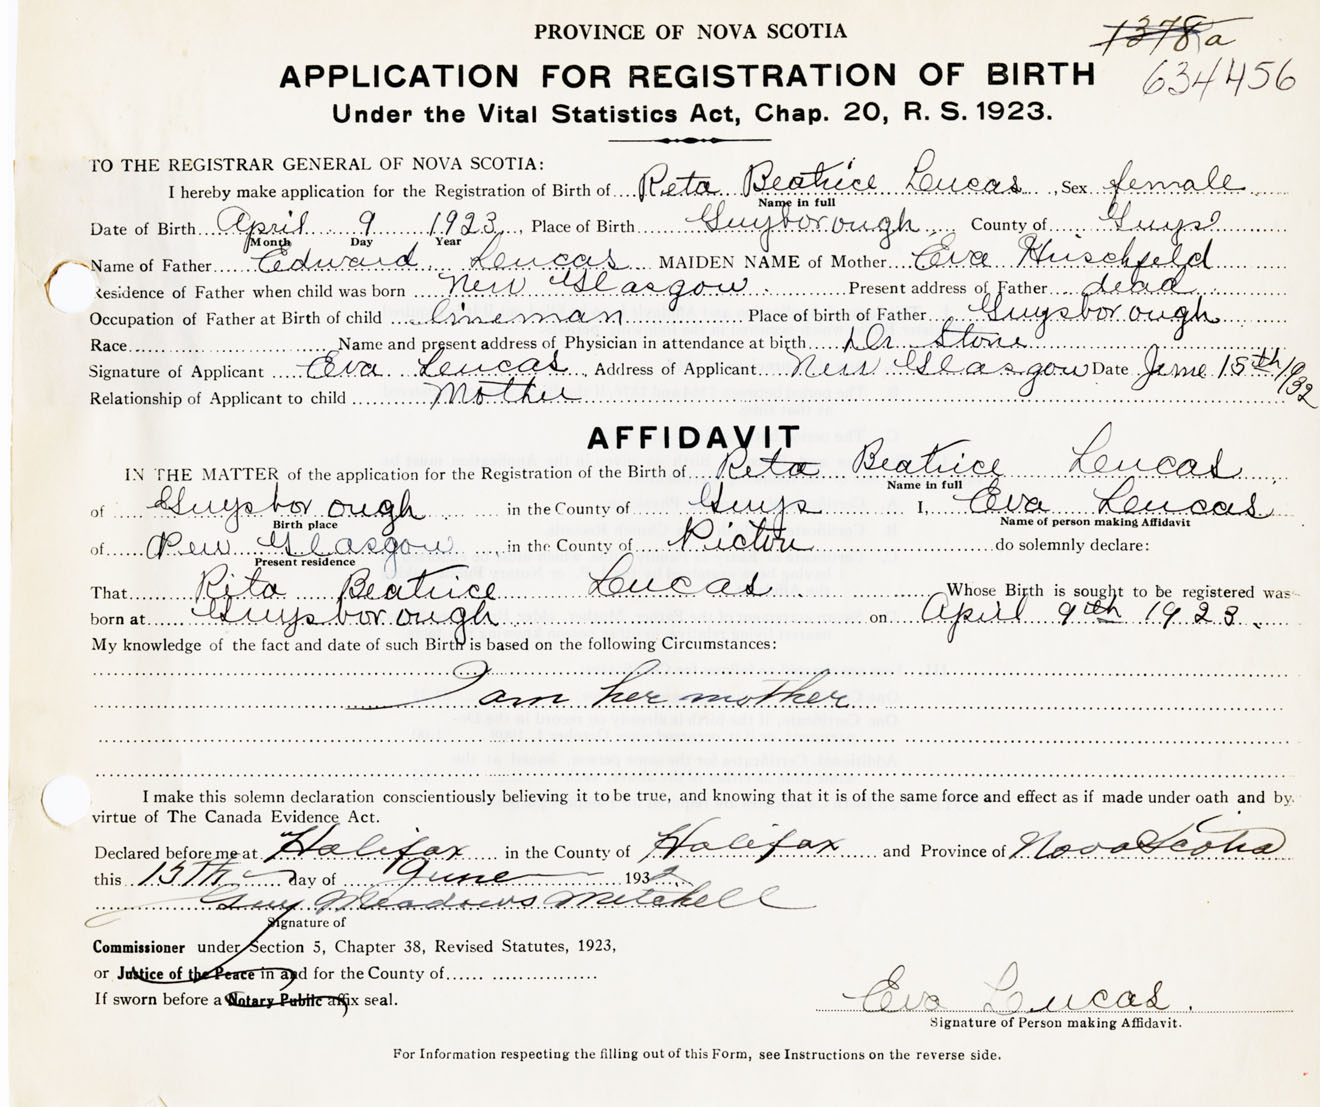 PROVINCE OF NOVA SCOTIA
1378a
APPLICATION FOR REGISTRATION OF BIRTH
634456
Under the Vital Statistics Act, Chap. 20, R. S. 1923.
TO THE REGISTRAR GENERAL OF NOVA SCOTIA:
I hereby make application for the Registration of Birth of Reta Beatrice Lucas, Sex female
Name in full
Date of Birth April 9 1923, Place of Birth Guysborough County of Guys
Month Day Year
Name of Father Edward Lucas MAIDEN NAME of Mother Eva Hirschfeld
Residence of Father when child was born New Glasgow Present address of Father dead
Occupation of Father at Birth of child lineman Place of birth of Father Guysborough
Race Name and present address of Physician in attendance at birth Dr Stone
Signature of Applicant Eva Lucas, Address of Applicant New Glasgow Date June 15th 1932
Relationship of Applicant to child Mother
AFFIDAVIT
IN THE MATTER of the application for the Registration of the Birth of Reta Beatrice Lucas
Name in full
of Guysborough in the County of Guys I, Eva Lucas
Birth place Name of person making Affidavit
of New Glasgow, in the County of Pictou do solemnly declare:
Present residence
That Rita Beatrice Lucas Whose Birth is sought to be registered was
born at Guysborough on April 9th 1923.
My knowledge of the fact and date of such Birth is based on the following Circumstances:
I am her mother
I make this solemn declaration conscientiously believing it to be true, and knowing that it is of the same force and effect as if made under oath and by
virtue of The Canada Evidence Act.
Declared before me at Halifax in the County of Halifax and Province of Nova Scotia
this 15th day of June 1932
Guy Meadows Mitchell
Signature of
Commissioner under Section 5, Chapter 38, Revised Statutes, 1923,
or Justice of the Peace in and for the County of
If sworn before a Notary Public affix seal.
Eva Lucas.
Signature of Person making Affidavit.
For Information respecting the filling out of this Form, see Instructions on the reverse side.